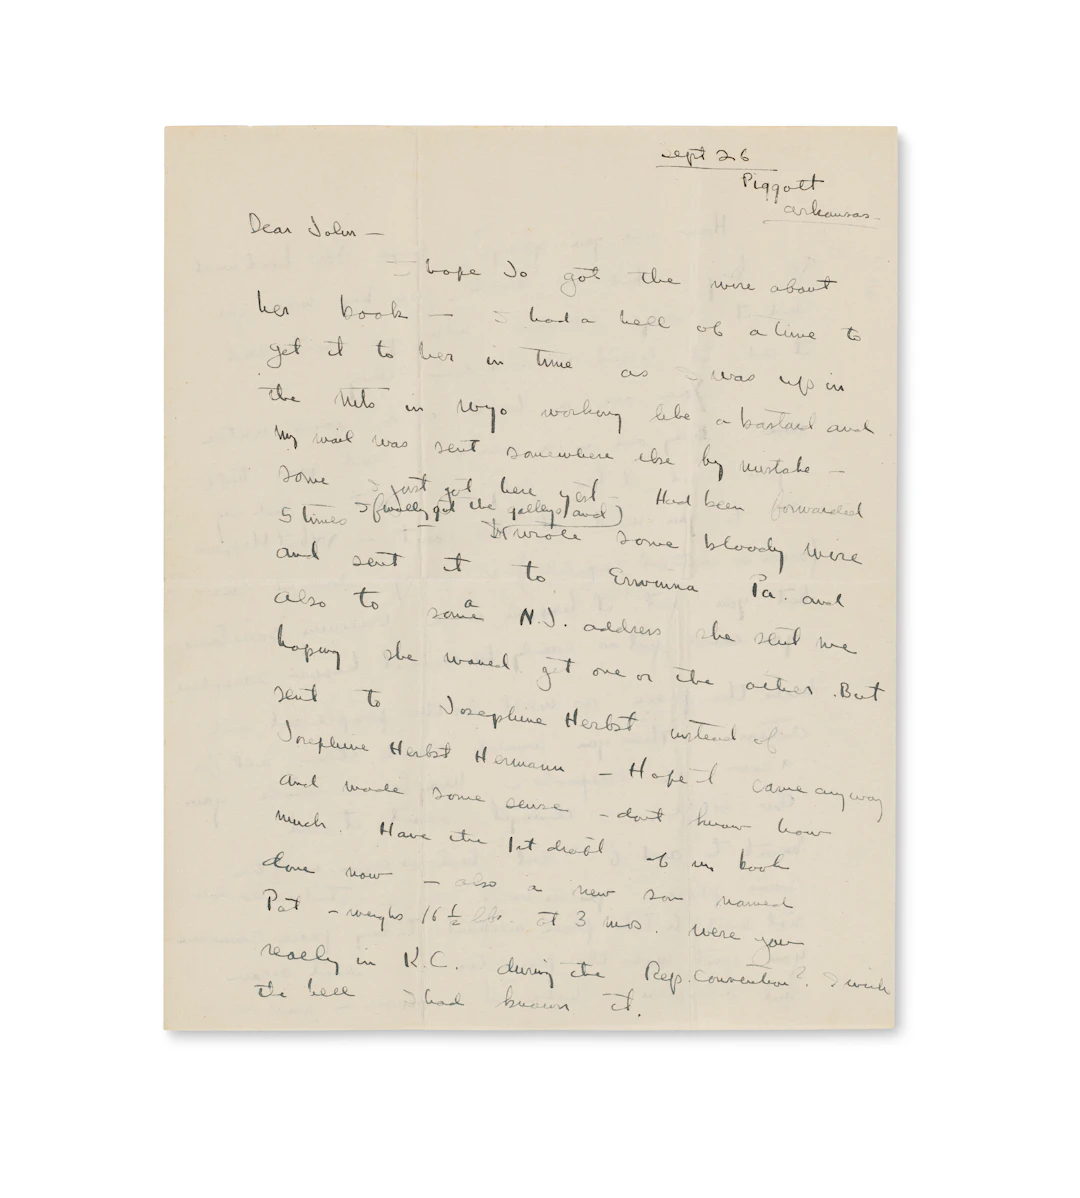 Sept 26
Piggott
Arkansas
Dear John —
I hope Jo got the wire about
her book — I had a hell of a time to
get it to her in time as I was up in
the Mts in Wyo working like a bastard and
my mail was sent somewhere else by mistake —
some I just got here yest. Had been forwarded
5 times I (finally got the galleys and)
wrote some bloody wire
and sent it to Erwinna Pa. and
also to a N.J. address she sent me
hoping she would get one or the other. But
sent to Josephine Herbst instead of
Josephine Herbst Hermann — Hope it came anyway
and made some sense — dont know how
much. Have the 1st draft of my book
done now — also a new son named
Pat — weighs 16 ½ lbs. at 3 mos. Were you
really in K.C. during the Rep. Convention? I wish
the hell I had known it.